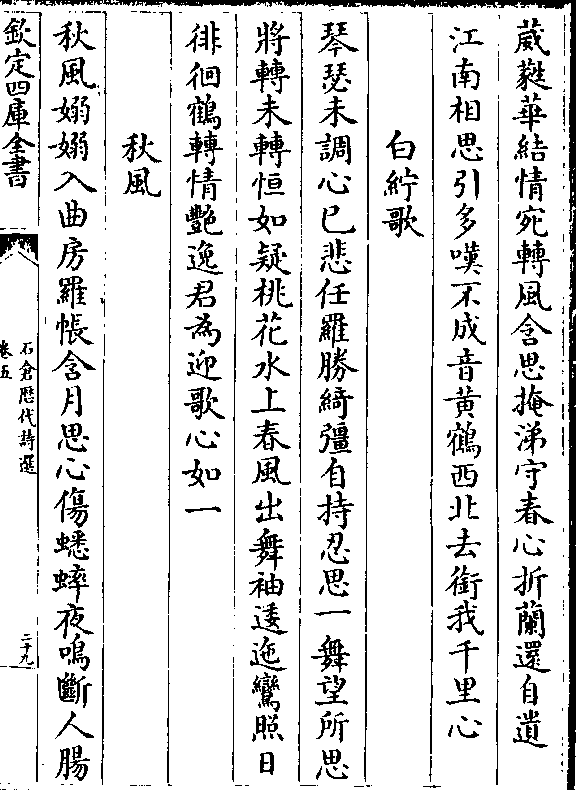 葳蕤華結情宛轉風含思掩涕守春心折蘭還自遺
江南相思引多嘆不成音黃鶴西北去銜我千里心
白紵歌
琴瑟未調心已悲任羅勝綺彊自持忍思一舞望所思
將轉未轉恒如疑桃花水上春風出舞袖逶迤鸞照日
徘徊鶴轉情艷逸君為迎歌心如一
秋風
秋風嫋嫋入曲房羅帳含月思心傷蟋蟀夜鳴斷人腸
欽定四庫全書
石倉歷代詩選
卷五
二十九